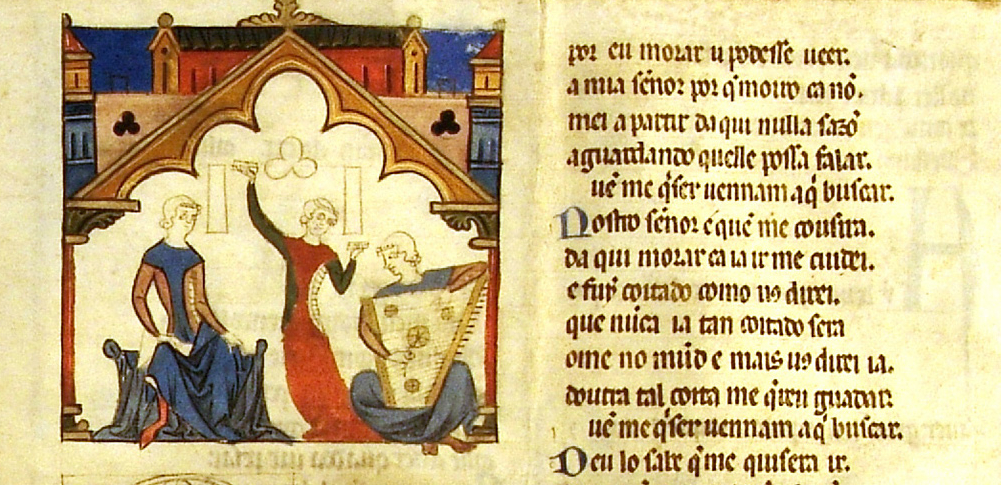 por eu morar u podesse ueer.
a mia señor por q̄ moiro ca nō.
mei a partir daqui nulla sazō
aguardando quelle possa falar.
uẽ me q̄ ser uennam aq̄ buscar.
Nostro señor e quē me cousira.
da qui morar ca ia ir me cuidei.
e fuy coitado como uꝯ direi.
que nūca ia tan coitado sera
ome no mūd e mais uꝯ direi ia.
doutra tal coita me q̄ireu guardar.
uẽ me q̄ ser uennam aq̄ buscar.
Deu lo sabe q̄ me quisera ir.